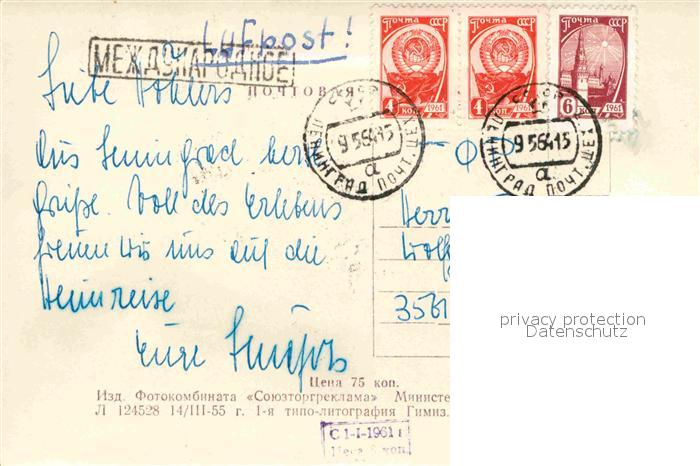 Luftpost!
МЕЖДУНАРОДНОЕ
ПОЧТОВАЯ
Почта СССР
4 коп. 1961
Почта СССР
4 коп. 1961
Почта СССР
6 коп. 1961
СССР
9 5 64 15
а
ЛЕНИНГРАД ПОЧТ. ЦЕХ
СССР
9 5 64 15
а
ЛЕНИНГРАД ПОЧТ. ЦЕХ
Liebe
aus Leningrad
Grüße. Voll des Erlebens
freuen wir uns auf die
Heimreise
Eure
Herr
Wolf
3561
privacy protection
Datenschutz
Цена 75 коп.
Изд. Фотокомбината «Союзторгреклама» Министе
Л 124528 14/III-55 г. 1-я типо-литография Гимиз.
С 1-I-1961 г
Цена коп.